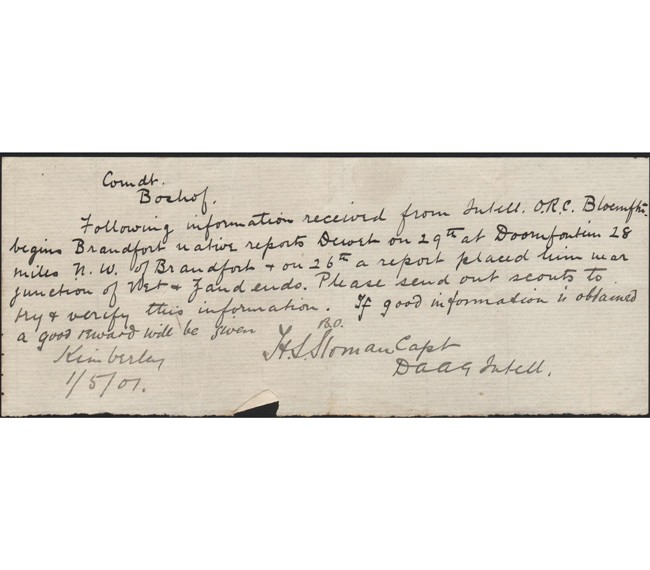 Comdt.
Boshof.
Following information received from Intell. O.R.C. Bloemftn.
begins Brandfort native reports Dewet on 29th at Doornfontein 28
miles N.W. of Brandfort & on 26th a report placed him near
junction of Vet & Zand ends. Please send out scouts to
try & verify this information. If good information is obtained
a good reward will be given
B.O.
Kimberley H.S. Sloman Capt
1/5/01. DAAG Intell.